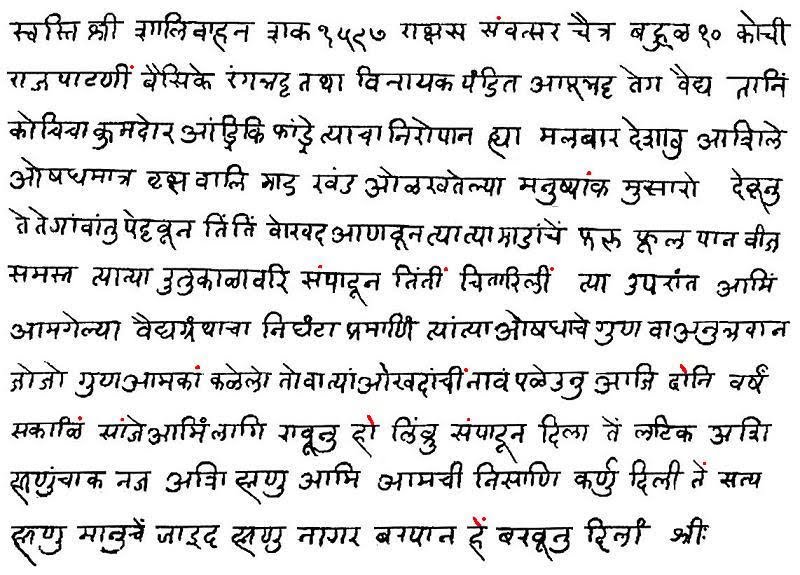 स्वस्ति श्री शालिवाहन शक १५९७ राक्षस संवत्सर चैत्र बहुळ १० कोची
राज पाटणीं बैसिके रंगभट्ट तथा विनायक पंडित आपभट्ट तेग वैद्य तानिं
कोचिचा कुमदोर आंद्रिकि फांद्रे त्याचा निरोपान ह्या मलबार देशांतु आशिले
ओषधमात्र वृक्ष वालि झाड खंड ओळखतेल्या मनुष्यांक मुसारो देवूनु
ते ते गांवांतु पेट्टवून तिंतिं वोखद आणवून त्या त्या झाडांचें फल फूल पान वीज
समस्त त्या त्या रुतुकाळावरि संपादून तिंतीं चितारिलीं त्या उपरांत आमिं
आमगेल्या वैद्यग्रंथाचा निघंटा प्रमाणिं त्यांत्या ओषधाचे गुण वा अनुभवान
जो जो गुण आमकां कळेलो तो वा त्यां ओखदांचीं नावं पळेउनु आजि दोनि वर्षं
सकाळिं सांजे आमिं लागि रावूनु हो लिंव्रु संपादून दिला तें लटिक अशि
म्हणुंचाक नज अशि म्हणु आमि आमची निसाणि कर्णु दिली तें सत्य
म्हणु मानुचें जाइद म्हणु नागर बरपान हें बरवूनु दिलां श्रीः